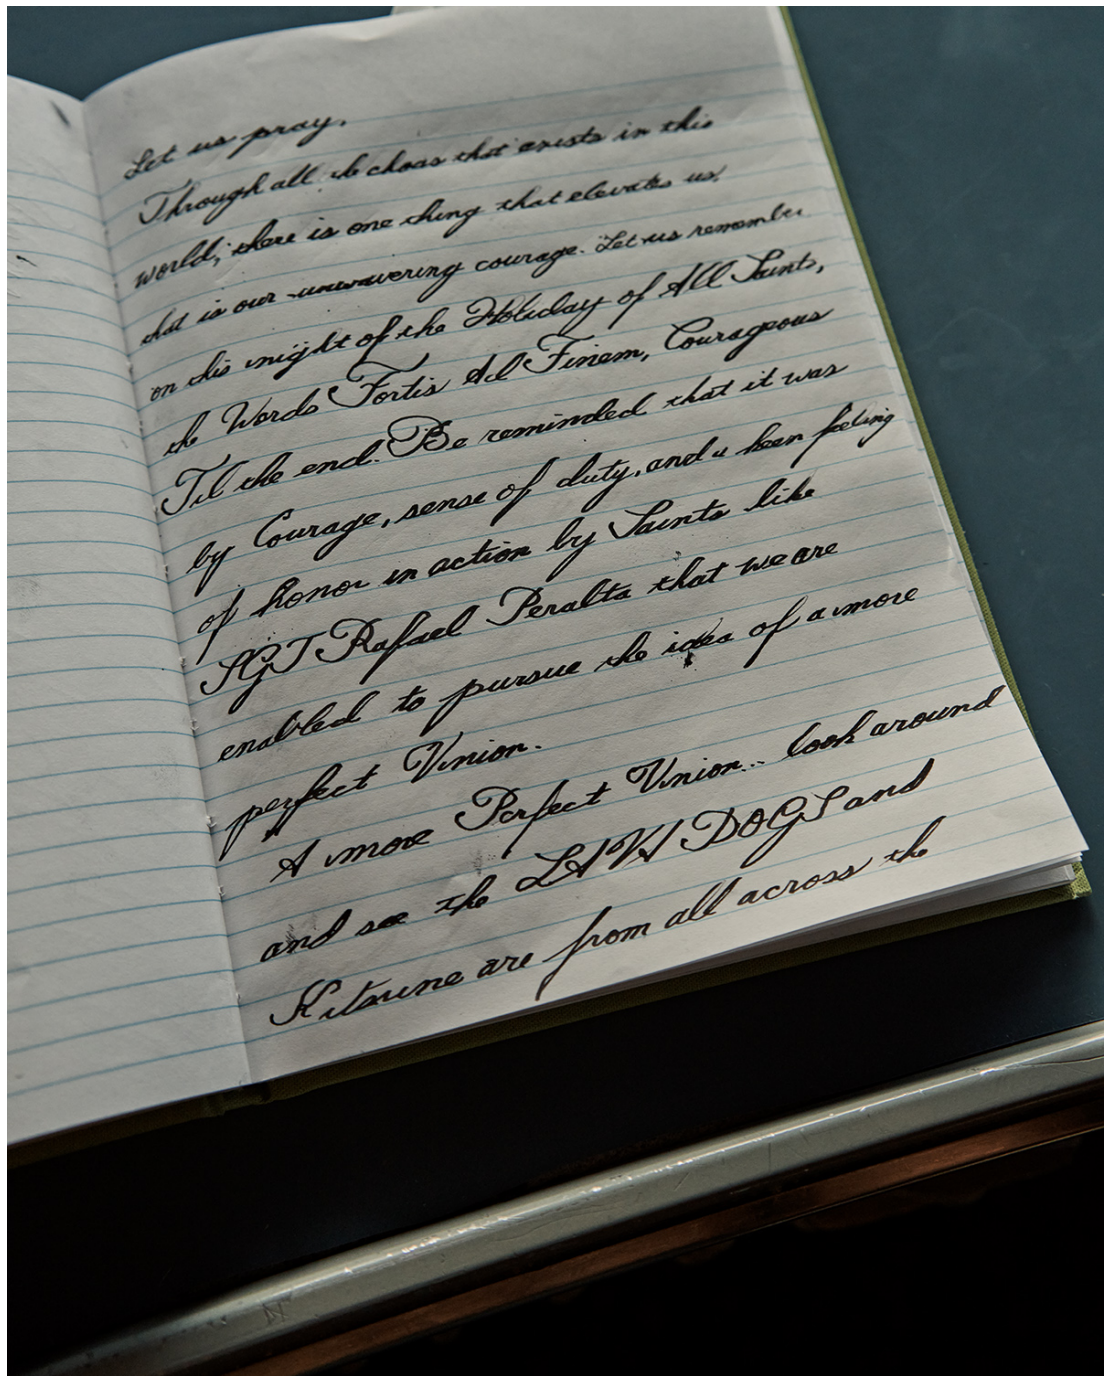 Let us pray.
Through all the choas that exists in this
world, there is one thing that elevates us,
that is our unwavering courage. Let us remember
on this night of the Holiday of All Saints,
the Words Fortis Ad Finem, Courageous
Til the end. Be reminded that it was
by Courage, sense of duty, and a keen feeling
of honor in action by Saints like
SGT Rafael Peralta that we are
enabled to pursue the idea of a more
perfect Union.
A more Perfect Union... look around
and see the LAVA DOGS and
Kitsune are from all across the